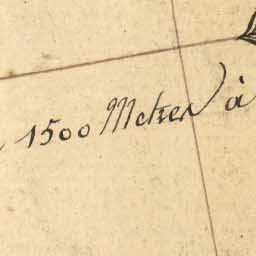 1500 Metres à